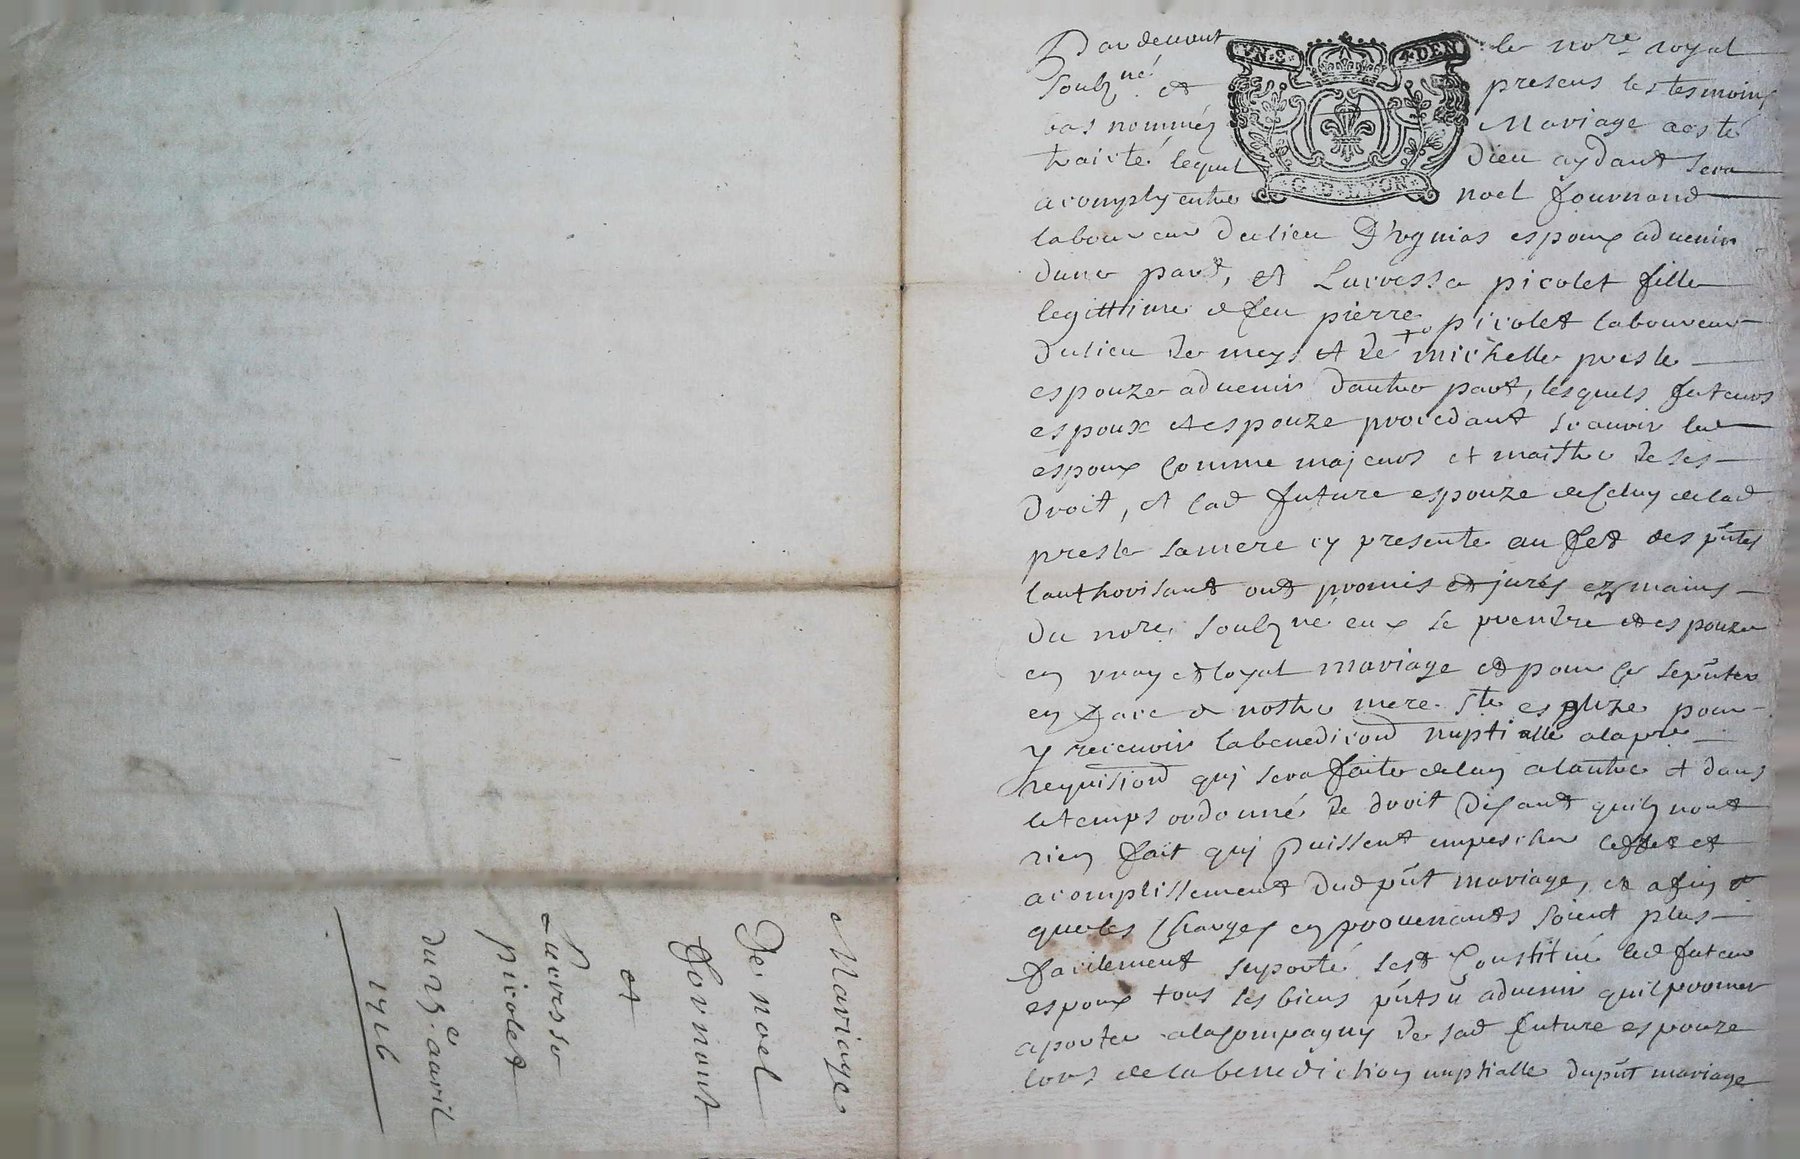 Mariage
De noel
fornout
et
Lucresse
picolet
du 25.e auril
1716
Pardeuant le nore royal
soubzné et presens les tesmoins
bas nommés Mariage a esté
traicté lequel Dieu aydant sera
acomply entre noel fournond
laboureur du lieu D'ognias espoux aduenir
dune part, et Lucresse picolet fille
legitthime de feu pierre picolet laboureur
du lieu de meys et de michelle presle
espouze aduenir dautre part, lesquels futeurs
espoux et espouze procedant scauoir led
espoux comme majeurs et maistre de ses
droit, et lad future espouze de celuy de lad
presle sa mere cy presente au fet des pntes
lauthorisant ont promis et jurés ez mains
du nore soubzné eux se prendre et espouzer
en vray et loyal mariage et pour ce se pnter
en face de nostre mere ste esglize pour
y receuoir la benedicond nuptialle a la pre
requisiond quj sera faite de lun a lautre et dans
le temps ordonné de droit disant quilz nont
rien fait quj puissent empescher et
acomplissement dud pnt mariage, et afin
que les charges en prouenants soient plus
facilement suporté sest constitué led futeur
espoux tous ses biens pnts u aduenir quil promet
aporter a la compagny de sad future espouze
lors de la benediction nuptialle du pnt mariage
N.E. DEN
G.D.LYON